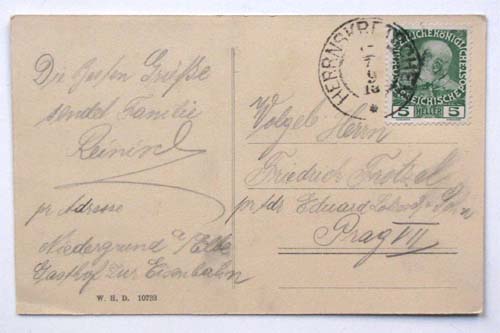 Die besten Grüße
sendet Familie
Reinisch
pr Adresse
Niedergrund a/Elbe
Gasthof Zur Eisenbahn
W. H. D. 10733
HERRNSKRETSCHEN
KAISERLICHE KÖNIGLICHE
ÖSTERREICHISCHE POST
5 HELLER 5
Herrn
Friedrich
pr Adr Eduard & Sohn
Prag VII